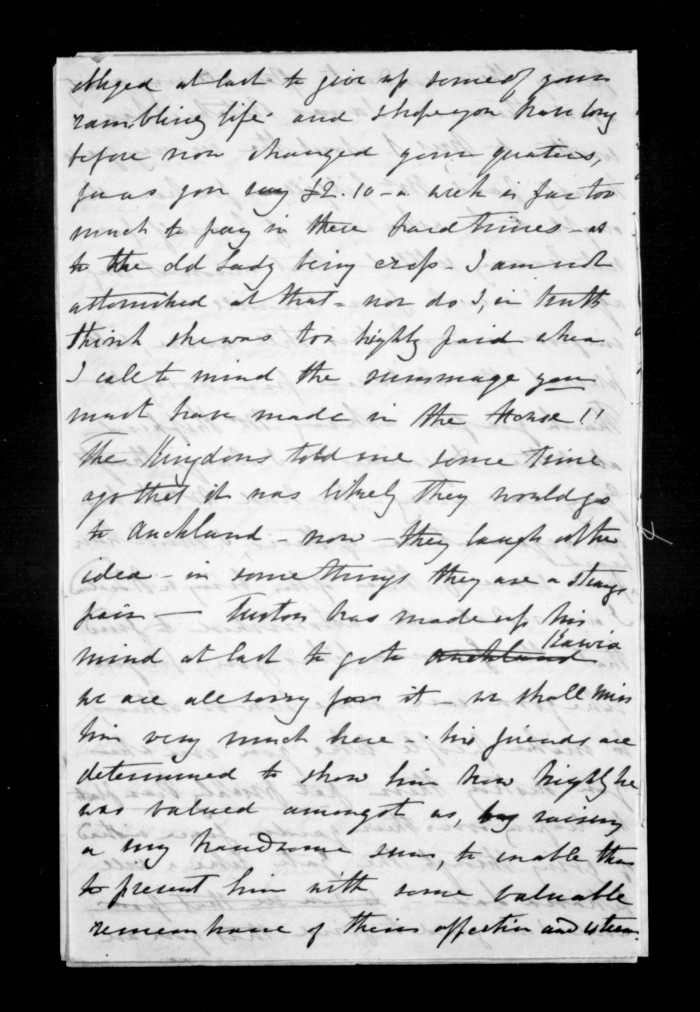 obliged at last to give up some of your
rambling life. and I hope you have long
before now changed your quarters,
for as you say £2.10 - a week is far too
much to pay in these hard times - as
to the old Lady being cross - I am not
astonished at that - nor do I, in truth
think she was too highly paid when
I call to mind the rummage you
must have made in the House!!
The Kingdons told me some time
ago that it was likely they would go
to Auckland - now - they laugh at the
idea - in some things they are a strange
pair — Turton has made up his
mind at last to go to Auckland Kawia
we are all sorry for it - we shall miss
him very much here - his friends are
determined to show him how highly he
was valued amongst us, by raising
a very handsome sum, to enable them
to present him with some valuable
remembrance of their affection and esteem